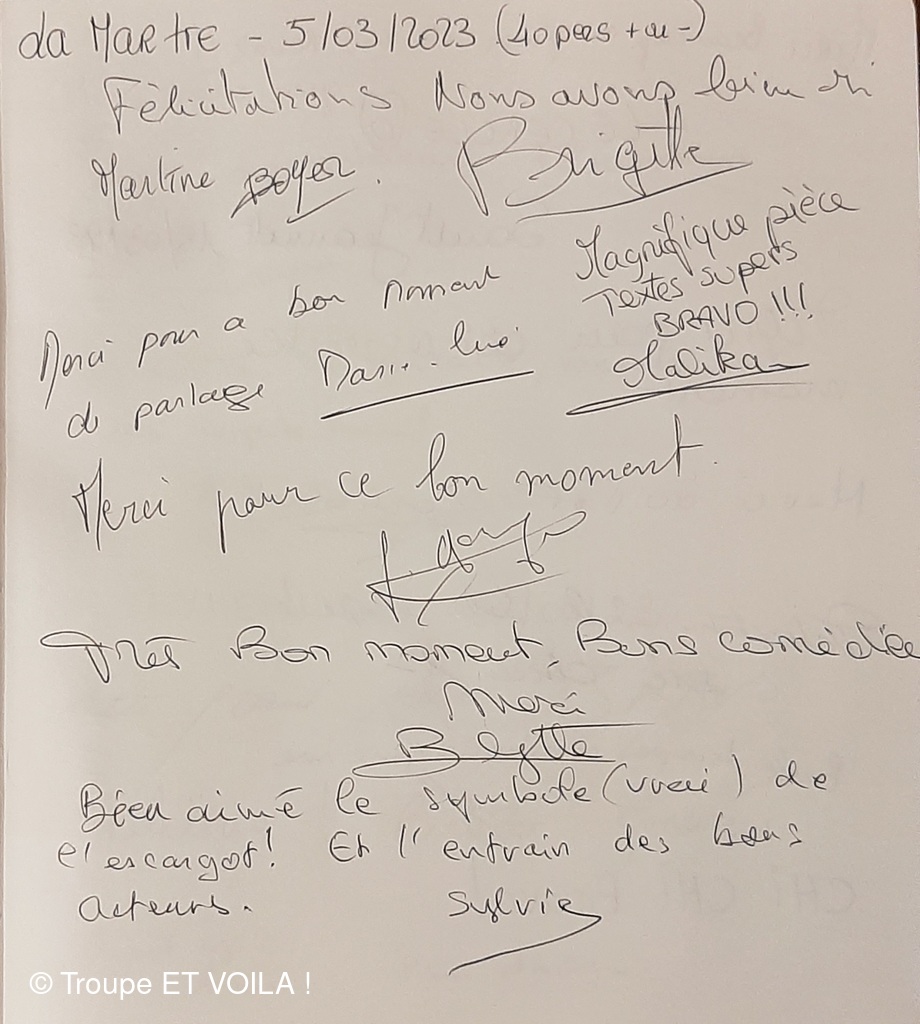 La Martre - 5/03/2023 (40 pers + ou -)
Félicitations Nous avons bien ri
Martine BOYER. Brigitte
Magnifique pièce
Textes supers
BRAVO !!!
Malika
Merci pour ce bon moment
de partage
Merci pour ce bon moment.
Très Bon moment, Bons comédie
Merci
Bien aimé le symbole (vrai) de
l'escargot! Et l'entrain des bons
acteurs. Sylvie
© Troupe ET VOILA !